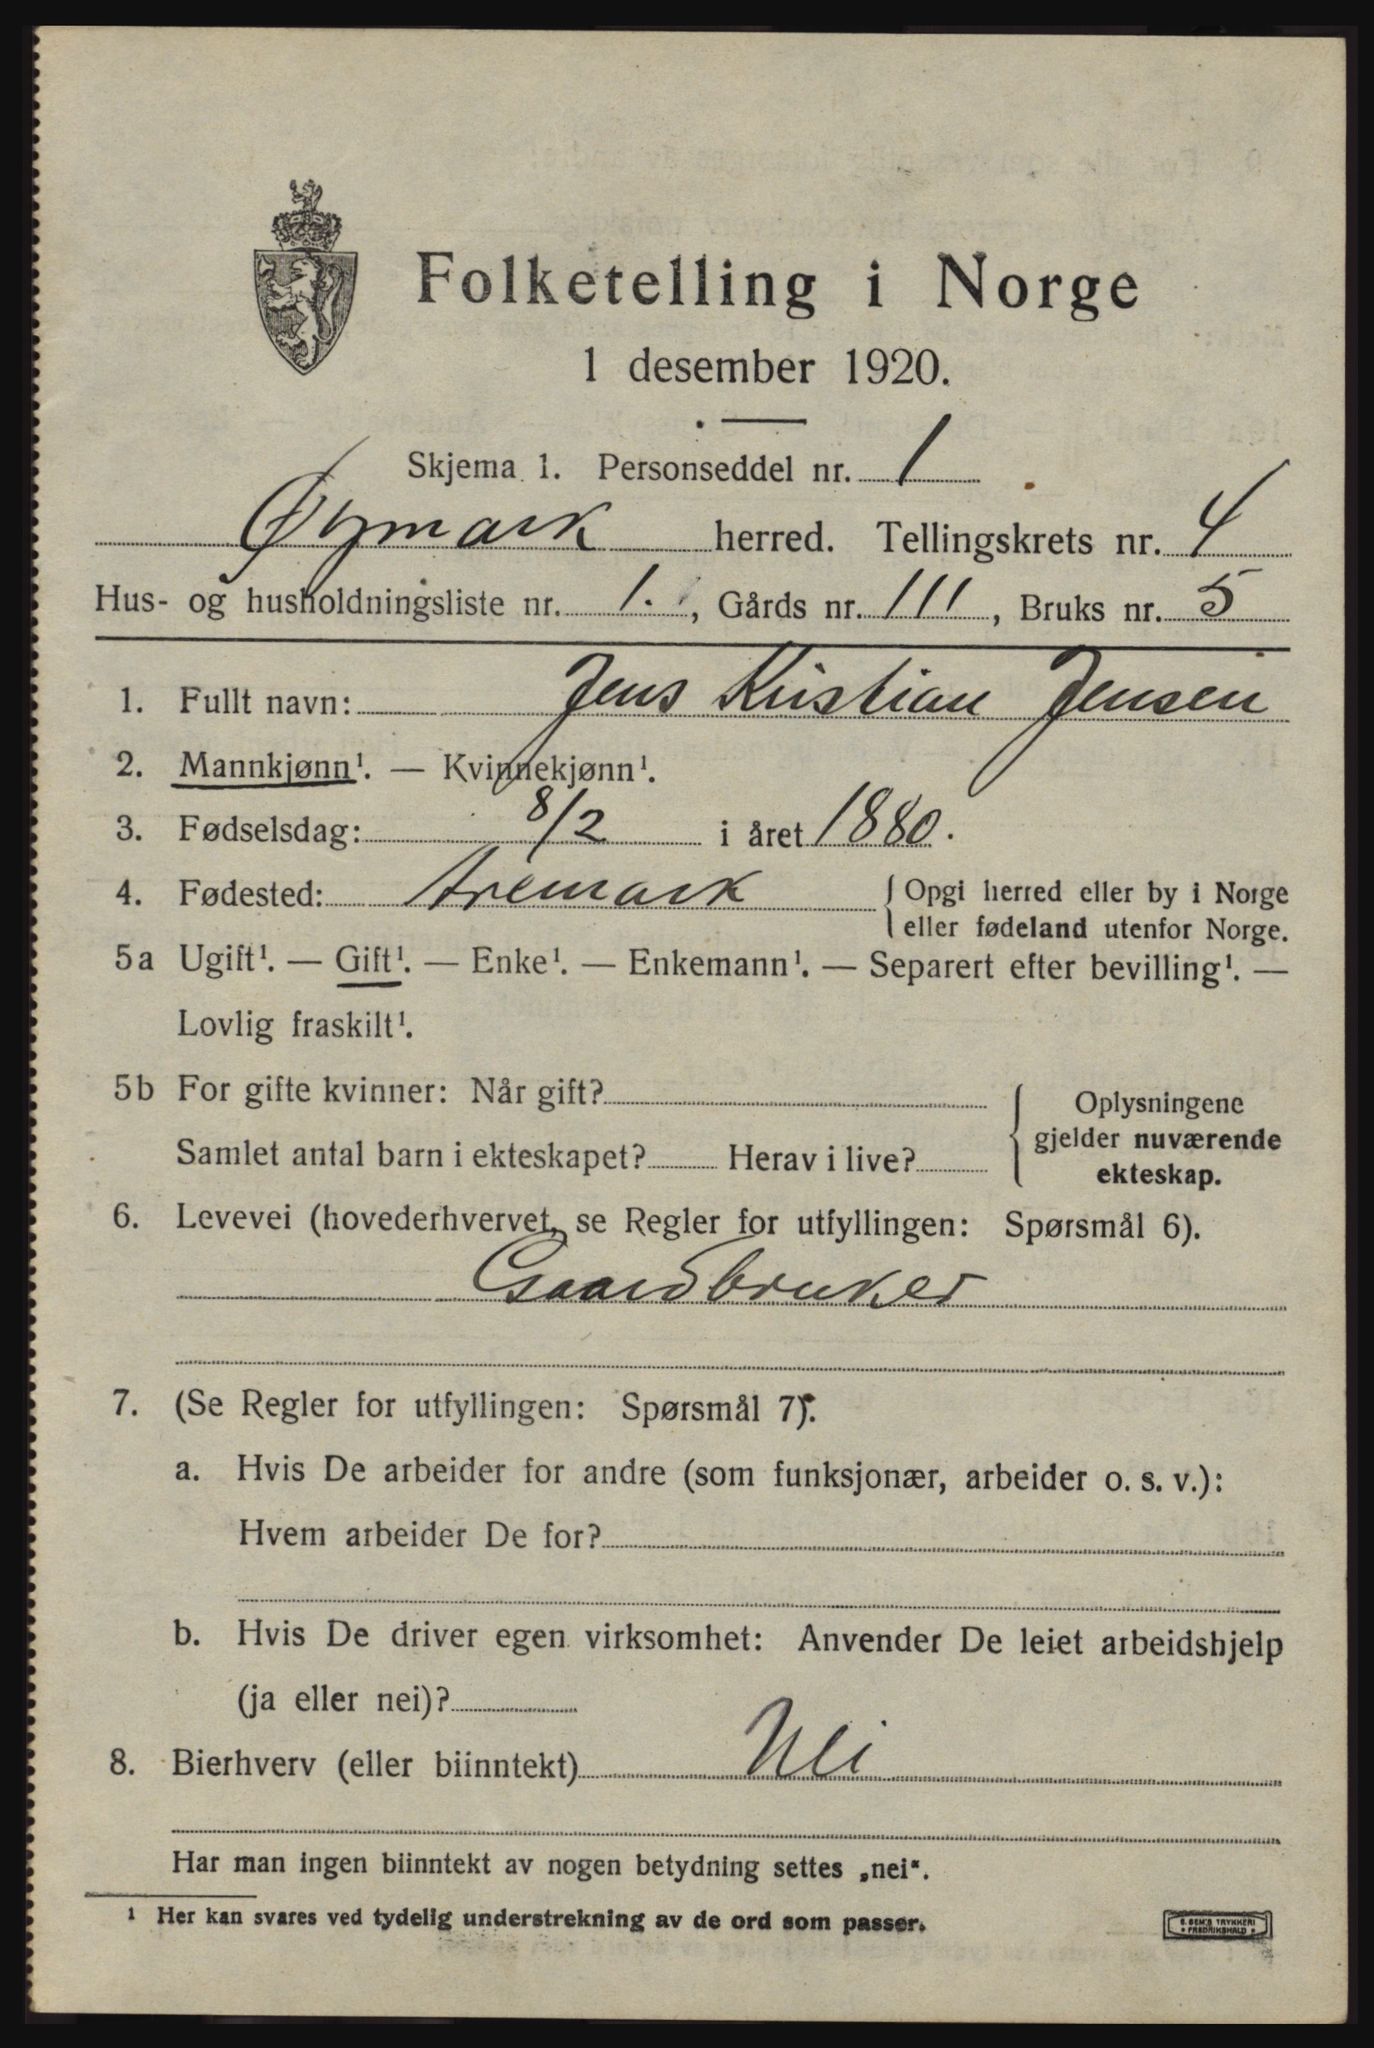 Folketelling i Norge
1 desember 1920.
Skjema 1. Personseddel nr. 1
Øymark herred. Tellingskrets nr. 4
Hus- og husholdningsliste nr. 1., Gårds nr. 111, Bruks nr. 5
1. Fullt navn: Jens Kristian Jensen
2. Mannkjønn¹. — Kvinnekjønn¹.
3. Fødselsdag: 8/2 i året 1880.
4. Fødested: Aremark { Opgi herred eller by i Norge
eller fødeland utenfor Norge.
5a Ugift¹. — Gift¹. — Enke¹. — Enkemann¹. — Separert efter bevilling¹. —
Lovlig fraskilt¹.
5b For gifte kvinner: Når gift? { Oplysningene
gjelder nuværende
Samlet antal barn i ekteskapet? Herav i live? ekteskap.
6. Levevei (hovederhvervet, se Regler for utfyllingen: Spørsmål 6).
Gaardbruker
7. (Se Regler for utfyllingen: Spørsmål 7).
a. Hvis De arbeider for andre (som funksjonær, arbeider o. s. v.):
Hvem arbeider De for?
b. Hvis De driver egen virksomhet: Anvender De leiet arbeidshjelp
(ja eller nei)?
8. Bierhverv (eller biinntekt) Nei
Har man ingen biinntekt av nogen betydning settes „nei“.
¹ Her kan svares ved tydelig understrekning av de ord som passer.
E. SEM'S TRYKKERI
FREDRIKSHALD